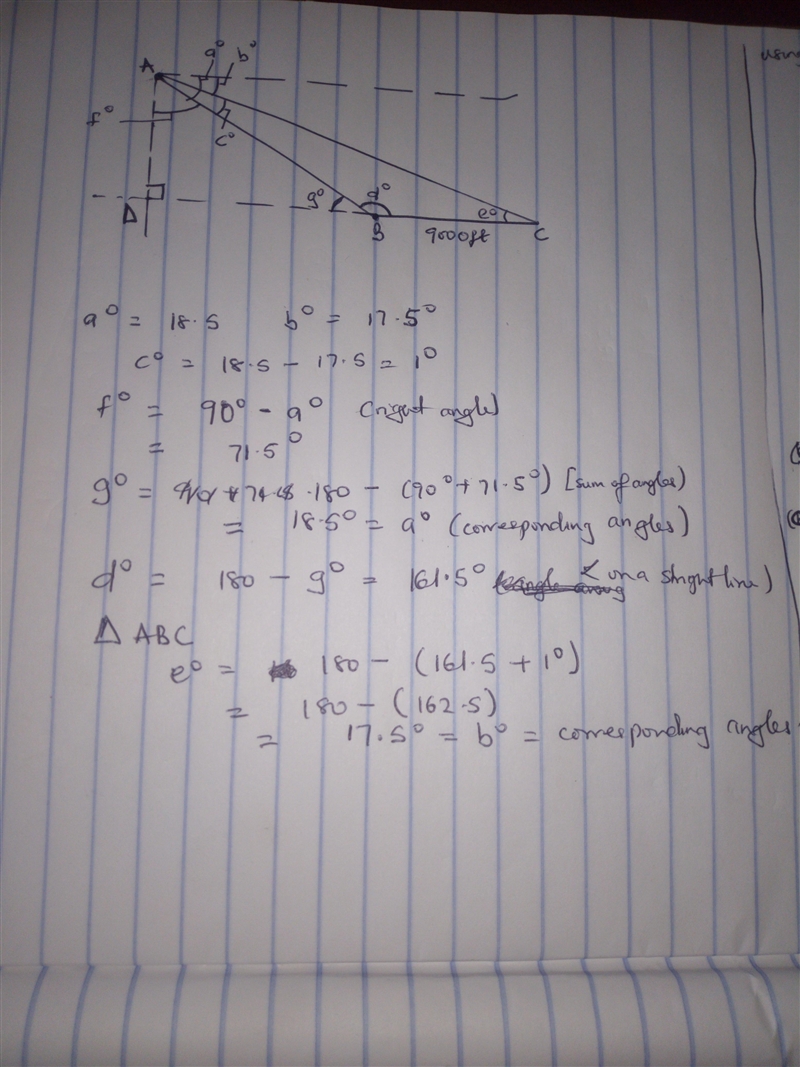 using
a° b°
A
f°
c°
g° d° e°
Δ B 9000ft C
a° = 18.5 b° = 17.5°
c° = 18.5 - 17.5 = 1°
f° = 90° - a° (right angle)
= 71.5°
g° = 180 - (90° + 71.5°) [sum of angles)
= 18.5° = a° (corresponding angles)
d° = 180 - g° = 161.5° < on a straight line)
Δ ABC
e° = 180 - (161.5 + 1°)
= 180 - (162.5)
= 17.5° = b° = corresponding angles